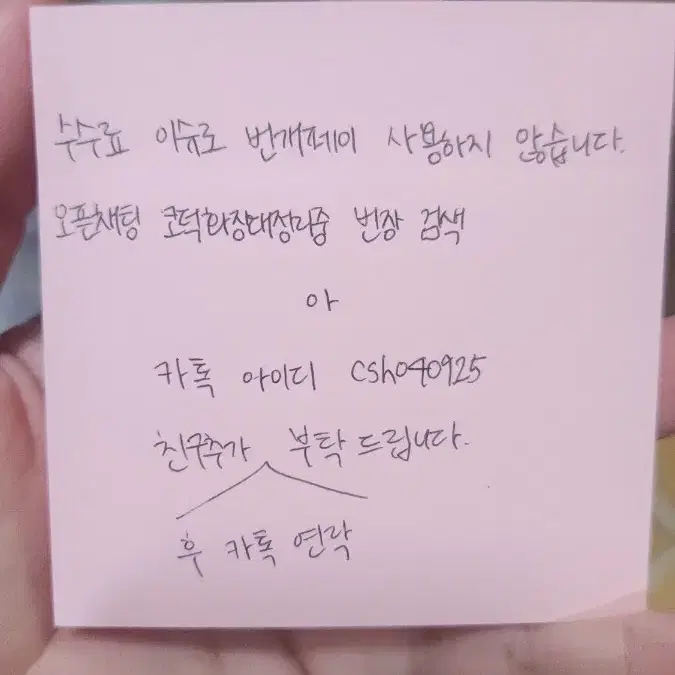 수수료 이슈로 번개페이 사용하지 않습니다.
오픈채팅 코덕화장대정리중 번장 검색
아
카톡 아이디 csh040925
친구추가 부탁드립니다.
후 카톡 연락